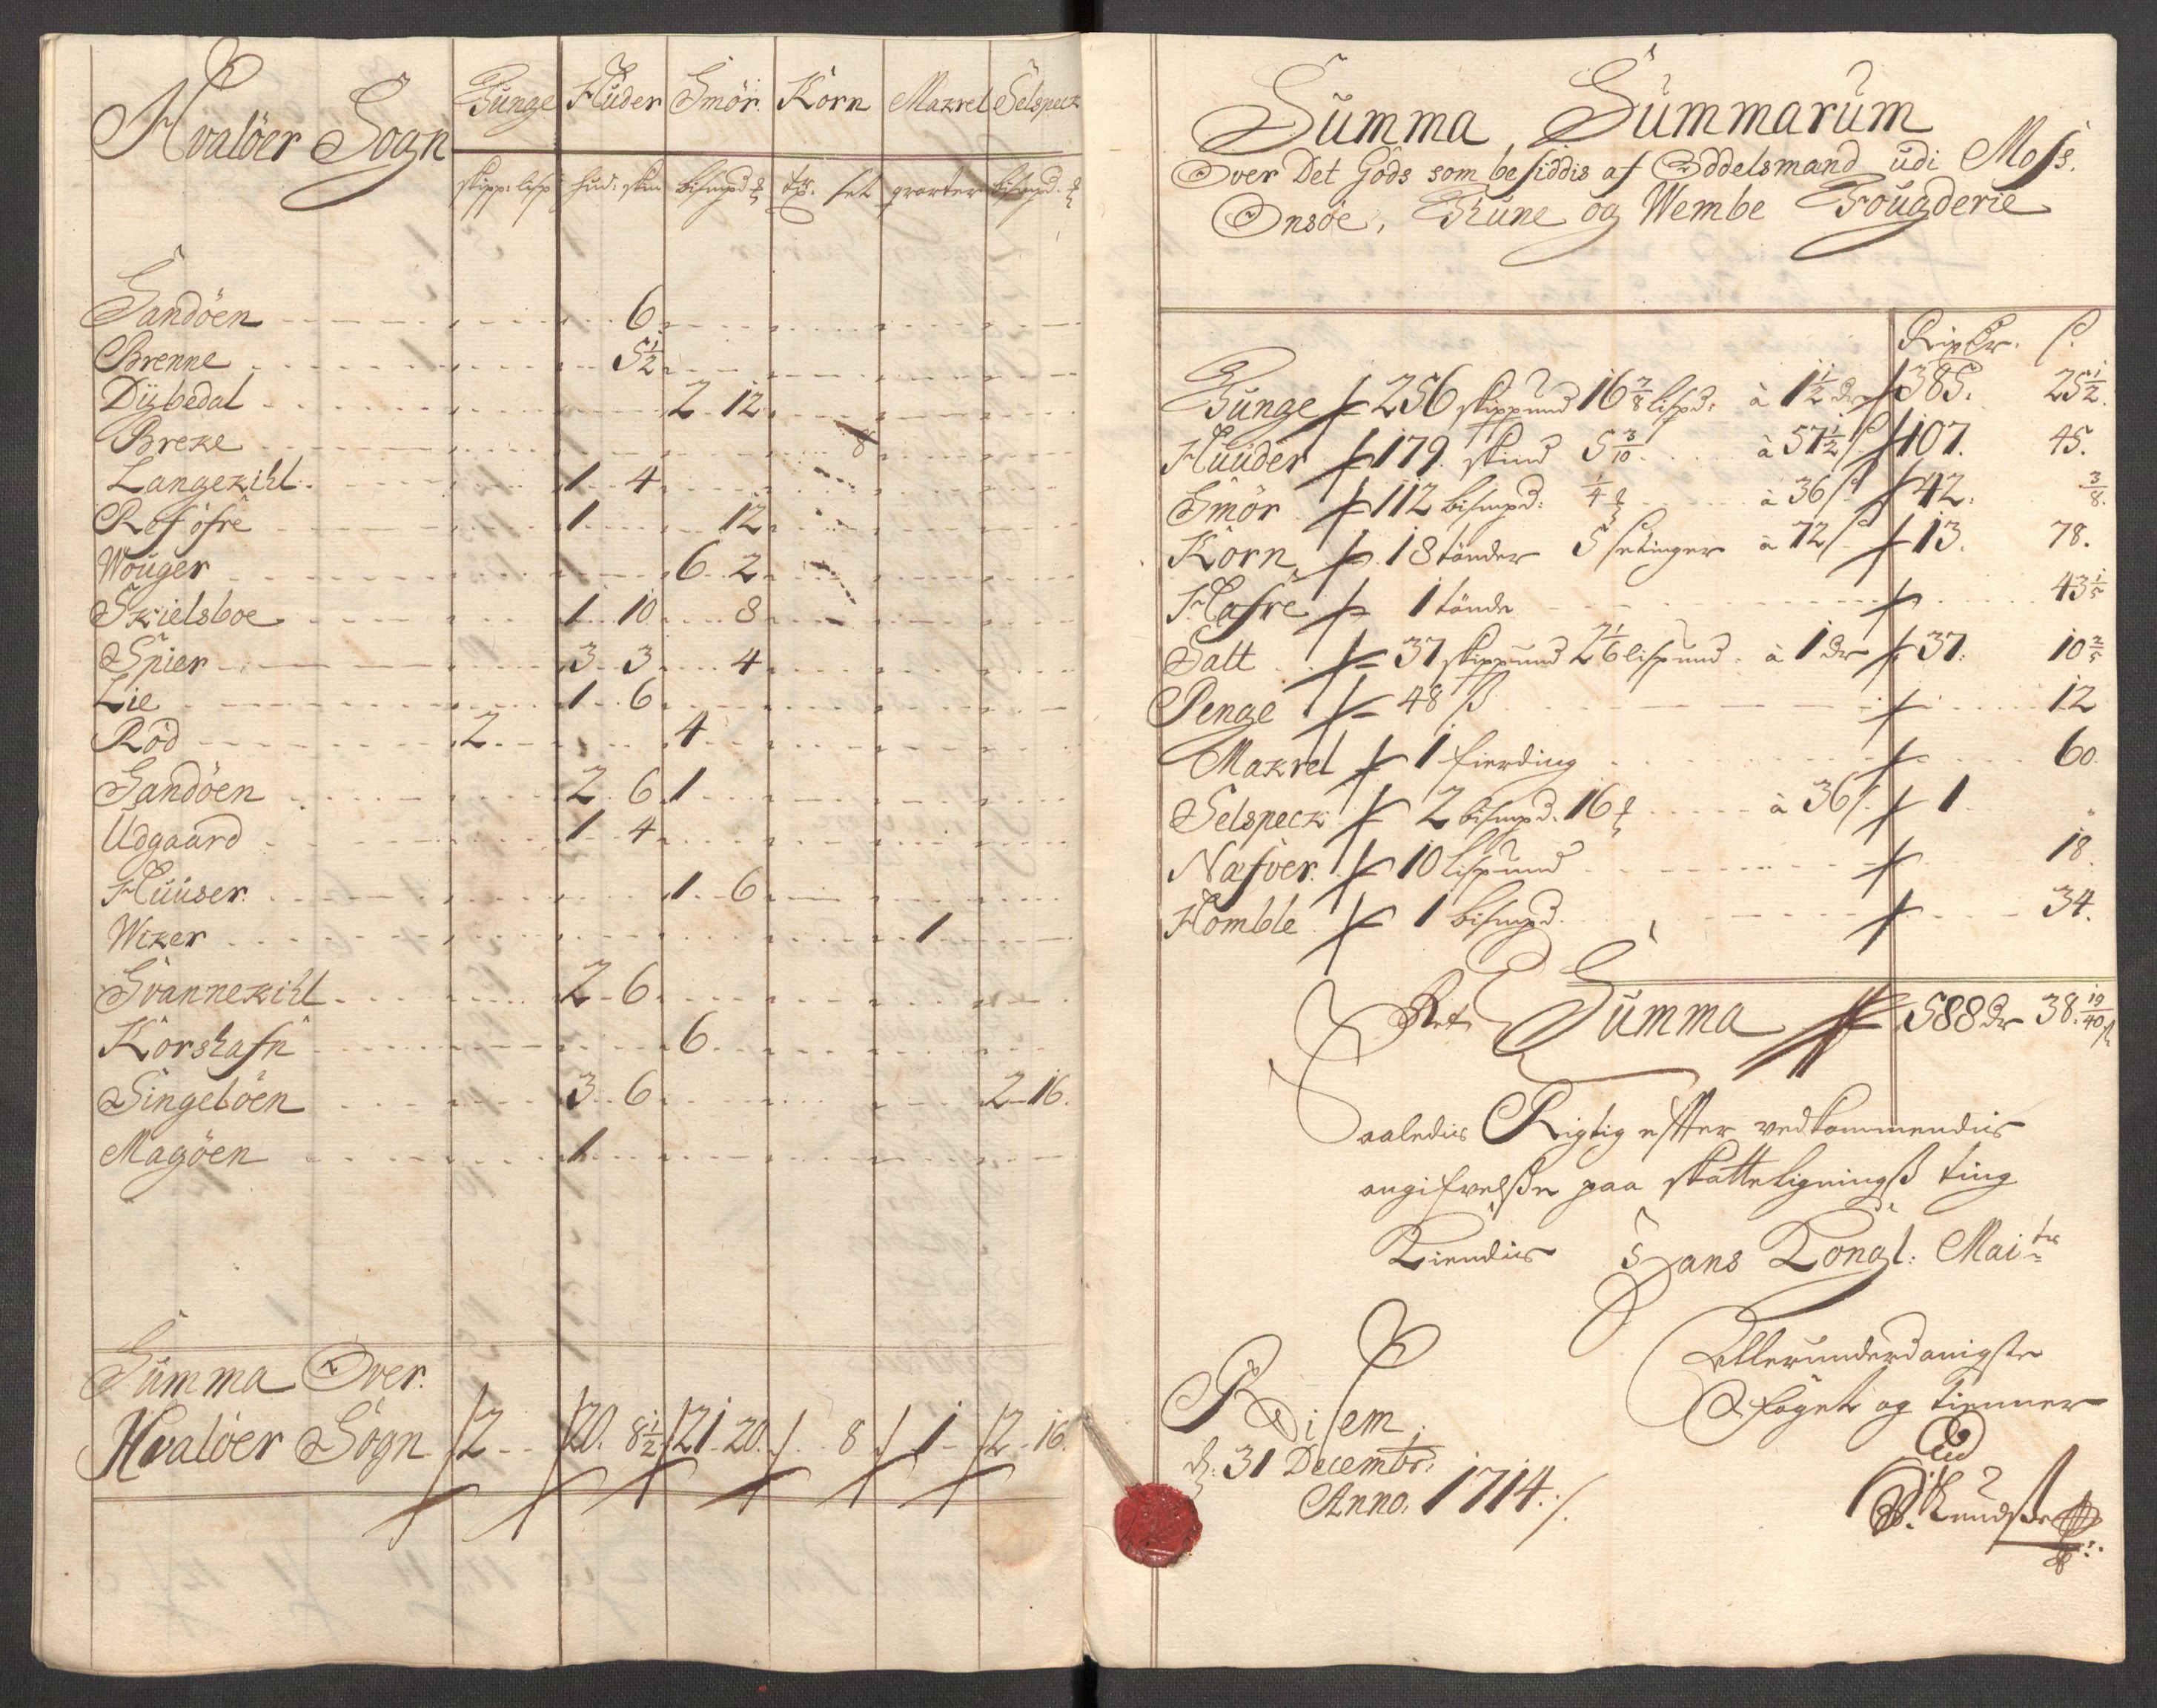 Hvalöer Sogn Tunge Huder Smör. Korn Makrel Selspeck
skipp: lisp hud: skin bismpd: ℔ tr. set qvarter bismpd. ℔
Sandöen 6
Brenne 5 1/2
Dÿbedal 2 12
Breke 8
Langekihl 1 4
Rofofre 1 12
Wouger 6 2
Skielsboe 1 10 8
Spier 3 3 4
Lie 1 6
Röd 2 4
Sandöen 2 6 1
Udgaard 1 4
Huuser 1 6
Wiker 1
Svannekihl 2 6
Korshafn 6
Singelöen 3 6 2 16
Magöen 1
Summa Over
Hvalöer Sogn 2 20. 8 1/2 21 20. 8 1 2 16.
Summa Summarum
Over Det Gods som besiddis af Oddelsmand udi Moss.
Onsöe, Thune og Wembe Fougderie
Rixdr. s.
Tunge 256 skippund 16 7/8 lispd: à 1 1/2 dr 385. 25 1/2.
Huuder 179. skind 5 3/10 à 57 1/2 s 107. 45.
Smör 112 bismpd: 1/4 ℔ à 36 s 42. 3/8.
Korn 18 tönder 5 setinger à 72 s 13. 78.
Hafre 1 tönde 43 1/5
Salt 37 skippund 2 1/6 lispund à 1 dr 37. 10 2/5
Penge 48 ß 12
Makrel 1 fierding 60
Selspeck 2 bismpd. 16 ℔ à 36 s 1
Nafver 10 lispund 18.
Homble 1 bismpd. 34.
Summa 588 dr 38. 19/40 s
Saaledis Rigtig effter vedkommendis
angifvelße paa skatteligningß ting
Tiendis Hans Kongl: Maits
Allerunderdanigste
foget og tienner
Disem
d. 31 Decembr:
Anno 1714.